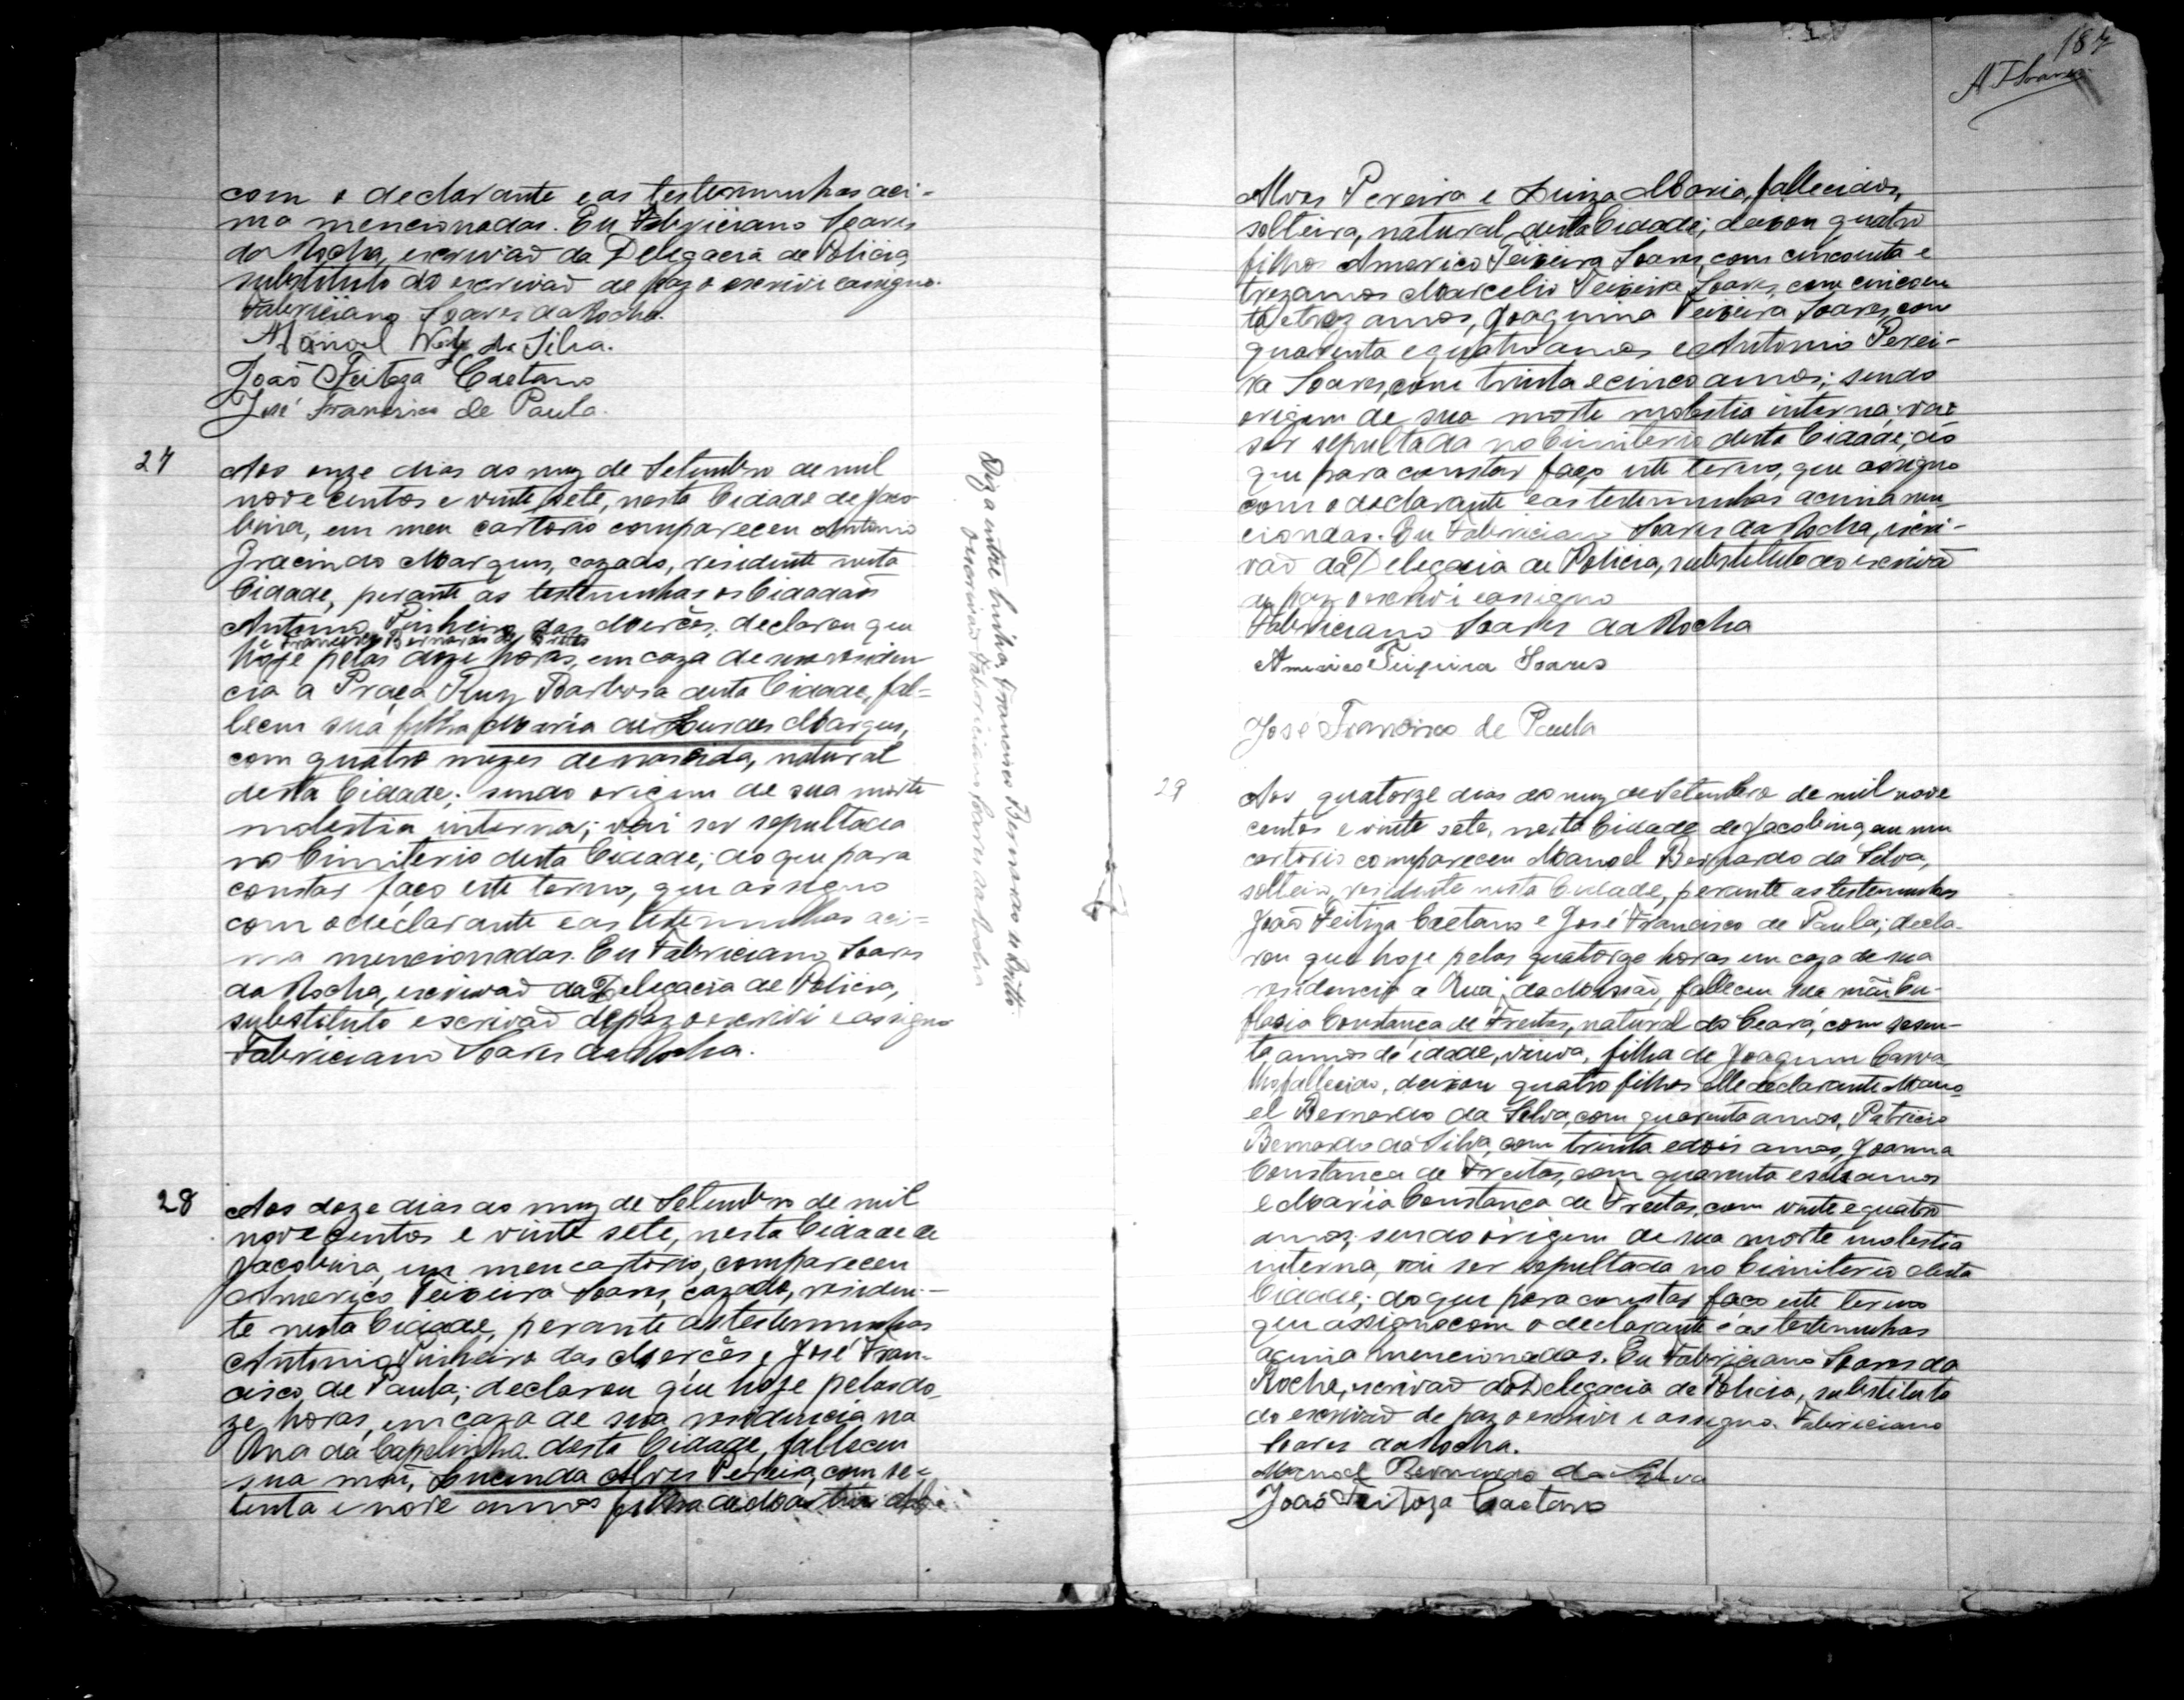 com o declarante e as testemunhas aci-
ma mencionadas. Eu Fabriciano Soares
da Rocha, escrivaõ da Delegacia de Policia
substituto do escrivaõ de paz o escrivi e assigno.
Fabriciano Soares da Rocha.
Manoel da Silva.
João Feitoza Caetano
José Francisco de Paula.
27 Aos onze dias do mez de Setembro de mil
nove centos e vinte sete, nesta Cidade de Jaco-
bina, em meu cartorio compareceu Antonio
Gracindo Marques, cazado, residente nesta
Cidade, perante as testemunhas os Cidadaõs
Antonio Pinheiro das Mercês; declarou que
e Francisco Bernardo de Britto
hoje pelas doze horas, em caza de sua residen-
cia a Praça Ruy Barbosa desta Cidade, fal=
leceu sua filha Maria de Lurdes Marques,
com quatro mezes de nascida, natural
desta Cidade; sendo origem de sua morte
molestia interna; vai ser sepultada
no Cimiterio desta Cidade; do que para
constar faço este termo, que assigno
com o declarante e as testemunhas aci=
ma mencionadas. Eu Fabriciano Soares
da Rocha, escrivaõ da Delegacia de Policia,
substituto escrivaõ de paz o escrivi e assigno
Fabriciano Soares da Rocha.
Diz a entre linha, Francisco Bernardo de Britto.
O escrivaõ Fabriciano Soares da Rocha
28 Aos doze dias do mez de Setembro de mil
nove centos e vinte sete, nesta Cidade de
Jacobina, em meu cartorio, compareceu
Americo Teixeira Soares, cazado, residen-
te nesta Cidade, perante as testemunhas
Antonio Pinheiro das Mercês e José Fran-
cisco de Paula; declarou que hoje pelas do-
ze horas, em caza de sua residencia na
Rua da Capelinha desta Cidade, falleceu
sua mãi, Lucinda Alves Pereira, com se-
tenta e nove annos filha de
187
A F Soares
Alves Pereira e Luiza Maria, fallecidos,
solteira, natural desta Cidade; deixou quatro
filhos Americo Teixeira Soares, com cincoenta e
trez annos Marcelio Teixeira Soares, com cincoen
ta e trez annos, Joaquina Teixeira Soares, com
quarenta e quatro annos e Antonio Perei-
ra Soares, com trinta e cinco annos; sendo
origem de sua morte molestia interna; vai
ser sepultada no Cimiterio desta Cidade; do
que para constar faço este termo, que assigno
com o declarante e as testemunhas acima men
ciondas. Eu Fabriciano Soares da Rocha, escri-
vaõ da Delegacia de Policia, substituto do escrivaõ
de paz o escrivi e assigno
Fabriciano Soares da Rocha
Americo Teixeira Soares
José Francisco de Paula
29 Aos quatorze dias do mez de Setembro de mil nove
centos e vinte sete, nesta Cidade de Jacobina, em meu
cartorio compareceu Manoel Bernardo da Silva,
solteiro, residente nesta Cidade, perante as testemunhas
João Feitoza Caetano e José Francisco de Paula; decla-
rou que hoje pelas quatorze horas em caza de sua
residencia a Rua da Missaõ, falleceu sua mãi Eu-
flasia Constança de Freitas, natural do Ceará, com sesen-
ta annos de idade, viuva, filha de Joaquim Carva
lho, fallecido, deixou quatro filhos elle declarante Mano-
el Bernardo da Silva, com quarenta annos, Patricio
Bernardo da Silva, com trinta e dois annos, Joanna
Constança de Freitas, com quarenta e seis annos
e Maria Constança de Freitas, com vinte e quatro
annos; sendo origem de sua morte molestia
interna, vai ser sepultada no Cimiterio desta
Cidade; do que para constar faço este termo
que assigno com o declarante e as testemunhas
acima mencionadas. Eu Fabriciano Soares da
Rocha, escrivaõ da Delegacia de Policia, substituto
do escrivaõ de paz o escrivi e assigno. Fabriciano
Soares da Rocha.
Manoel Bernardo da Silva
João Feitoza Caetano